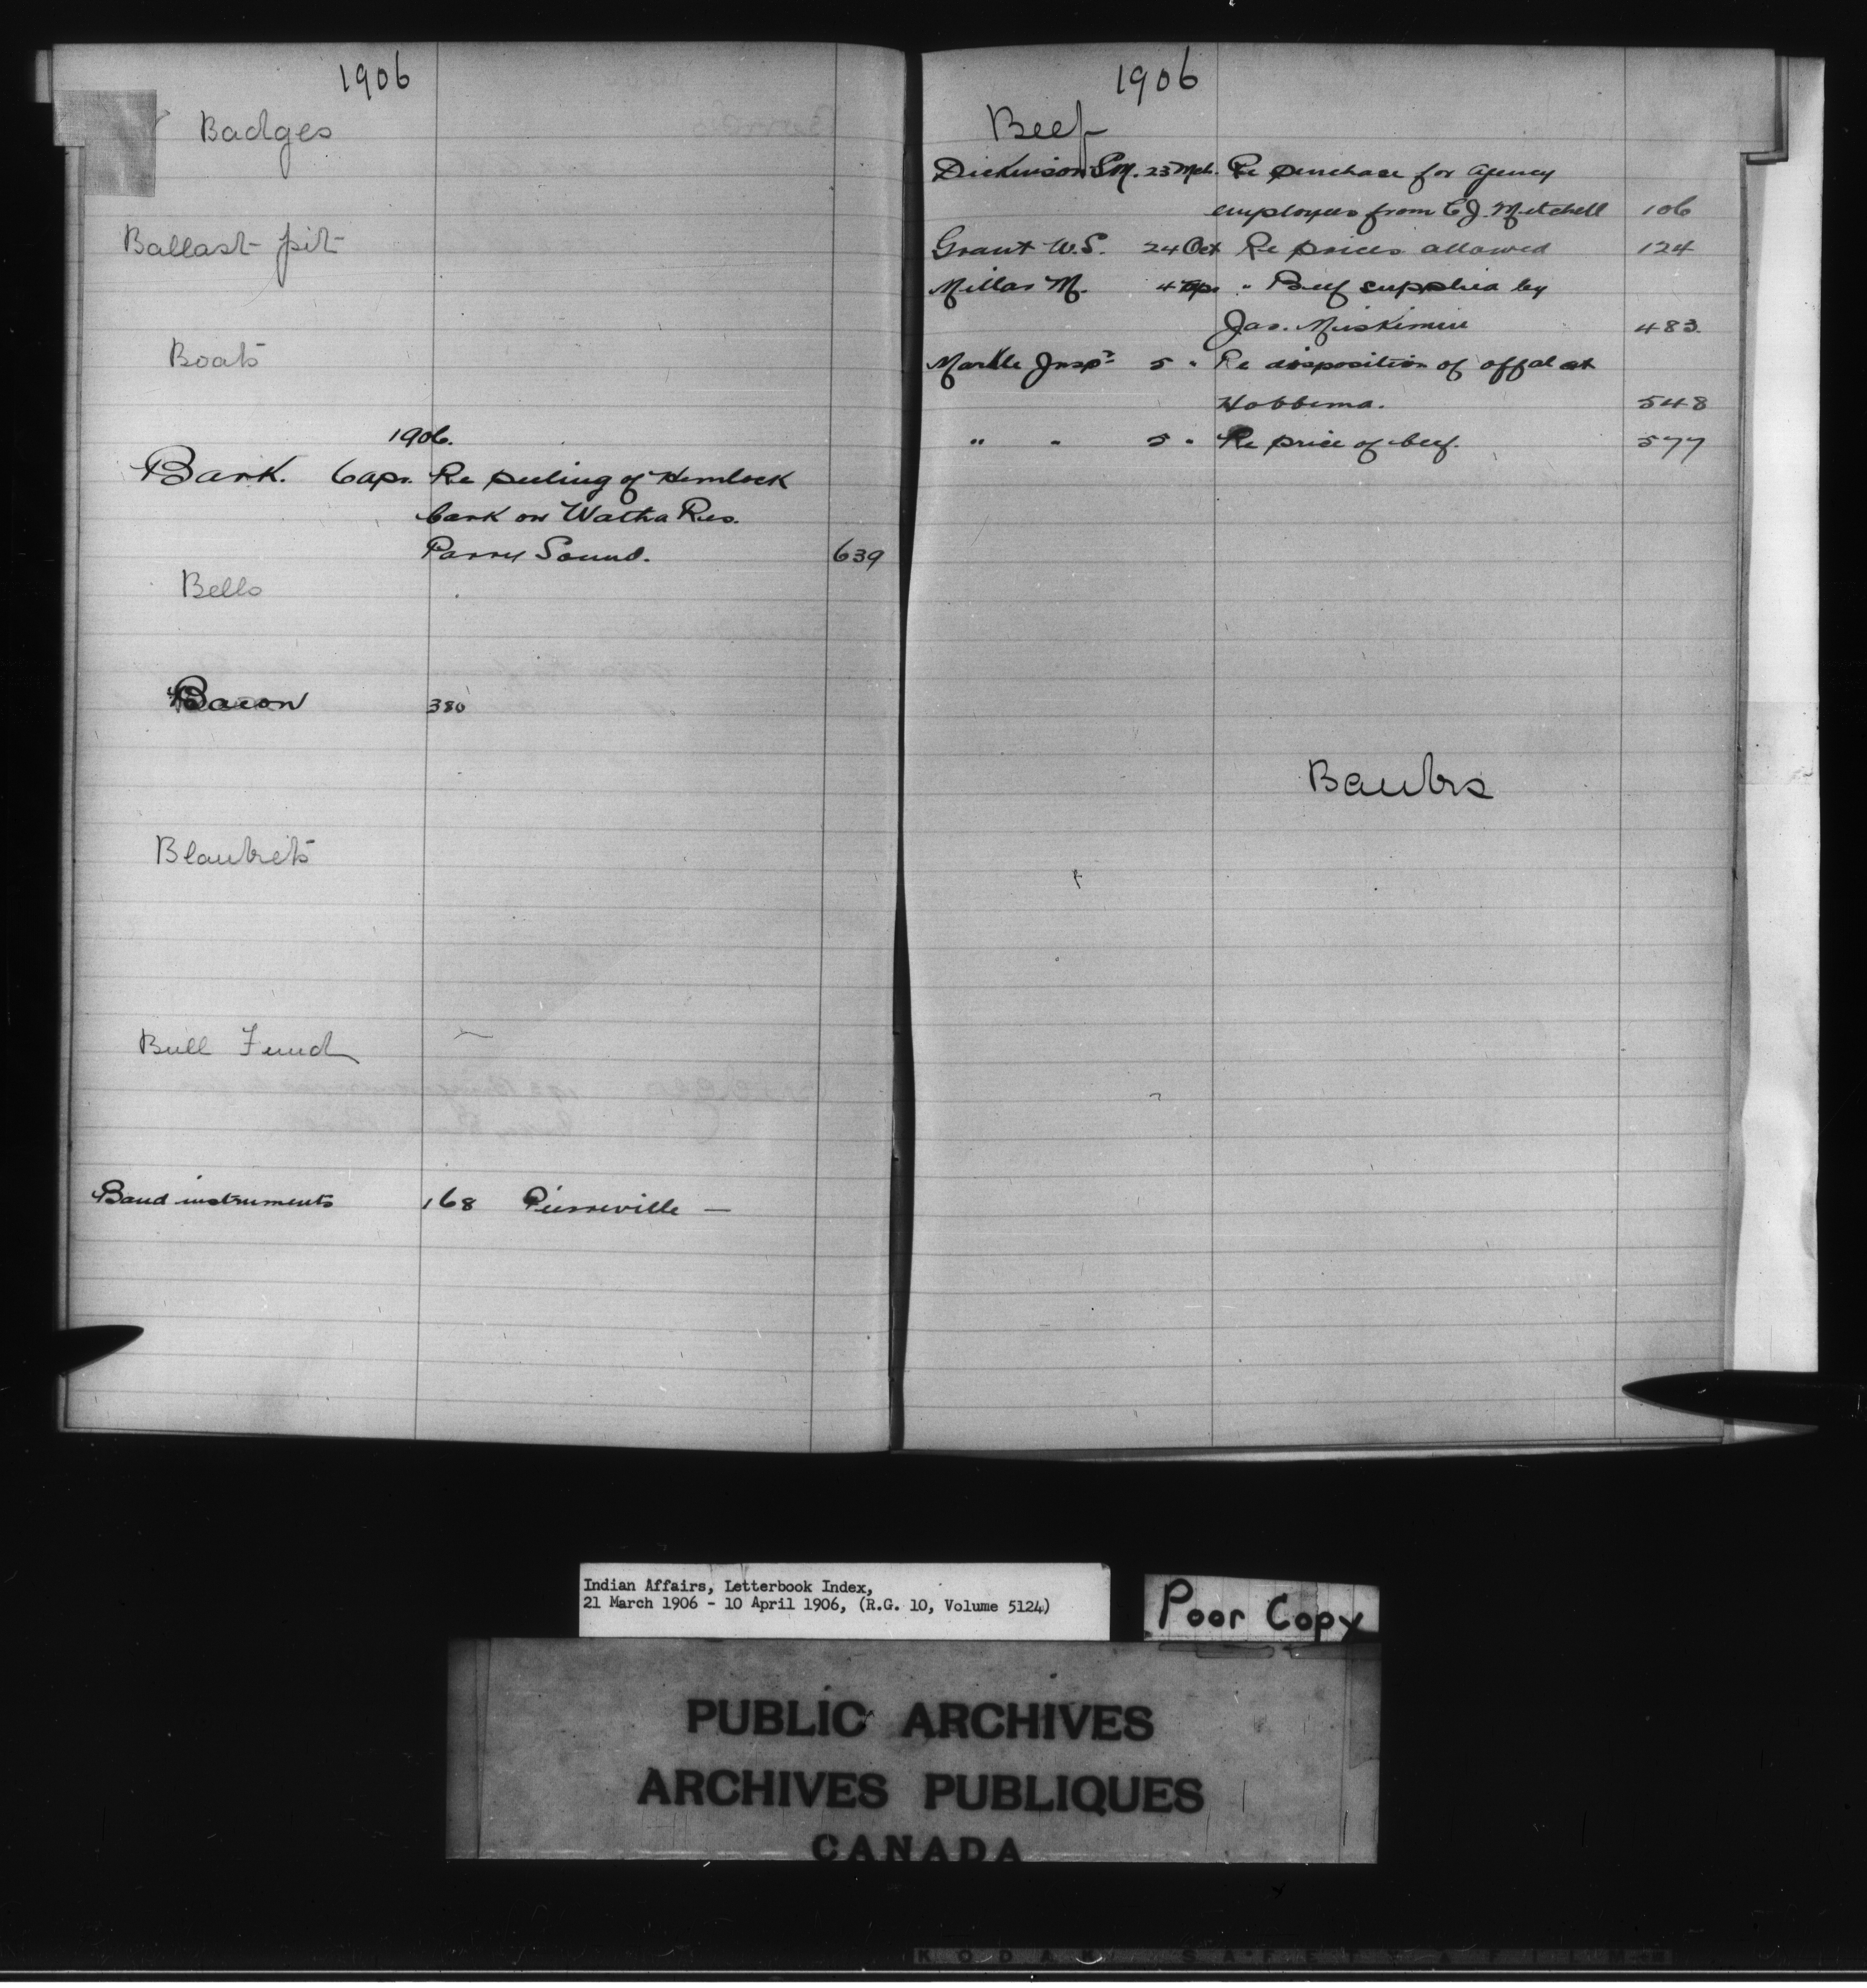 1906
Badges
Ballast pit
Boats
1906.
Bark. 6 Apr. Re peeling of Hemlock
bark on Watha Res.
Parry Sound. 639
Bells
Bacon 380
Blankets
Bull Fund
Band instruments 168 Pierreville —
1906
Beef
Dickinson S.M. 23 Mch. Re purchase for agency
employees from C.J. Mitchell 106
Grant W.S. 24 Oct Re prices allowed 124
Millar M. 4 Ap. " Beef supplied by
Jas. Miskimin 483.
Markle Inspr 5 " Re disposition of offal at
Hobbema. 548
" " 5 " Re price of beef. 577
Banks
Indian Affairs, Letterbook Index,
21 March 1906 - 10 April 1906, (R.G. 10, Volume 5124)
Poor Copy
PUBLIC ARCHIVES
ARCHIVES PUBLIQUES
CANADA
KODAK SAFETY FILM